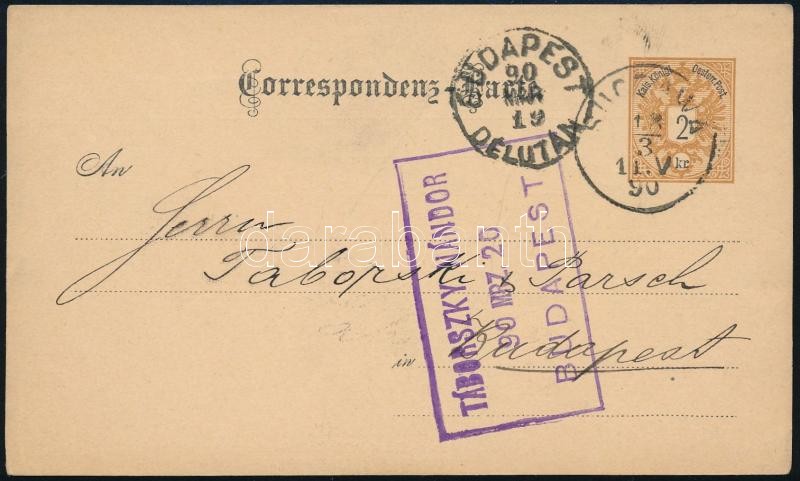 Correspondenz-Karte
BUDAPEST
90
MÁR
19
DÉLUTÁN
Kais. Königl. Oesterr. Post.
2
kr.
3
90
An
Herrn
Taborski & Parsch
in Budapest
TÁBORSZKY NÁNDOR
90 MRZ 20
BUDAPEST
darabanth